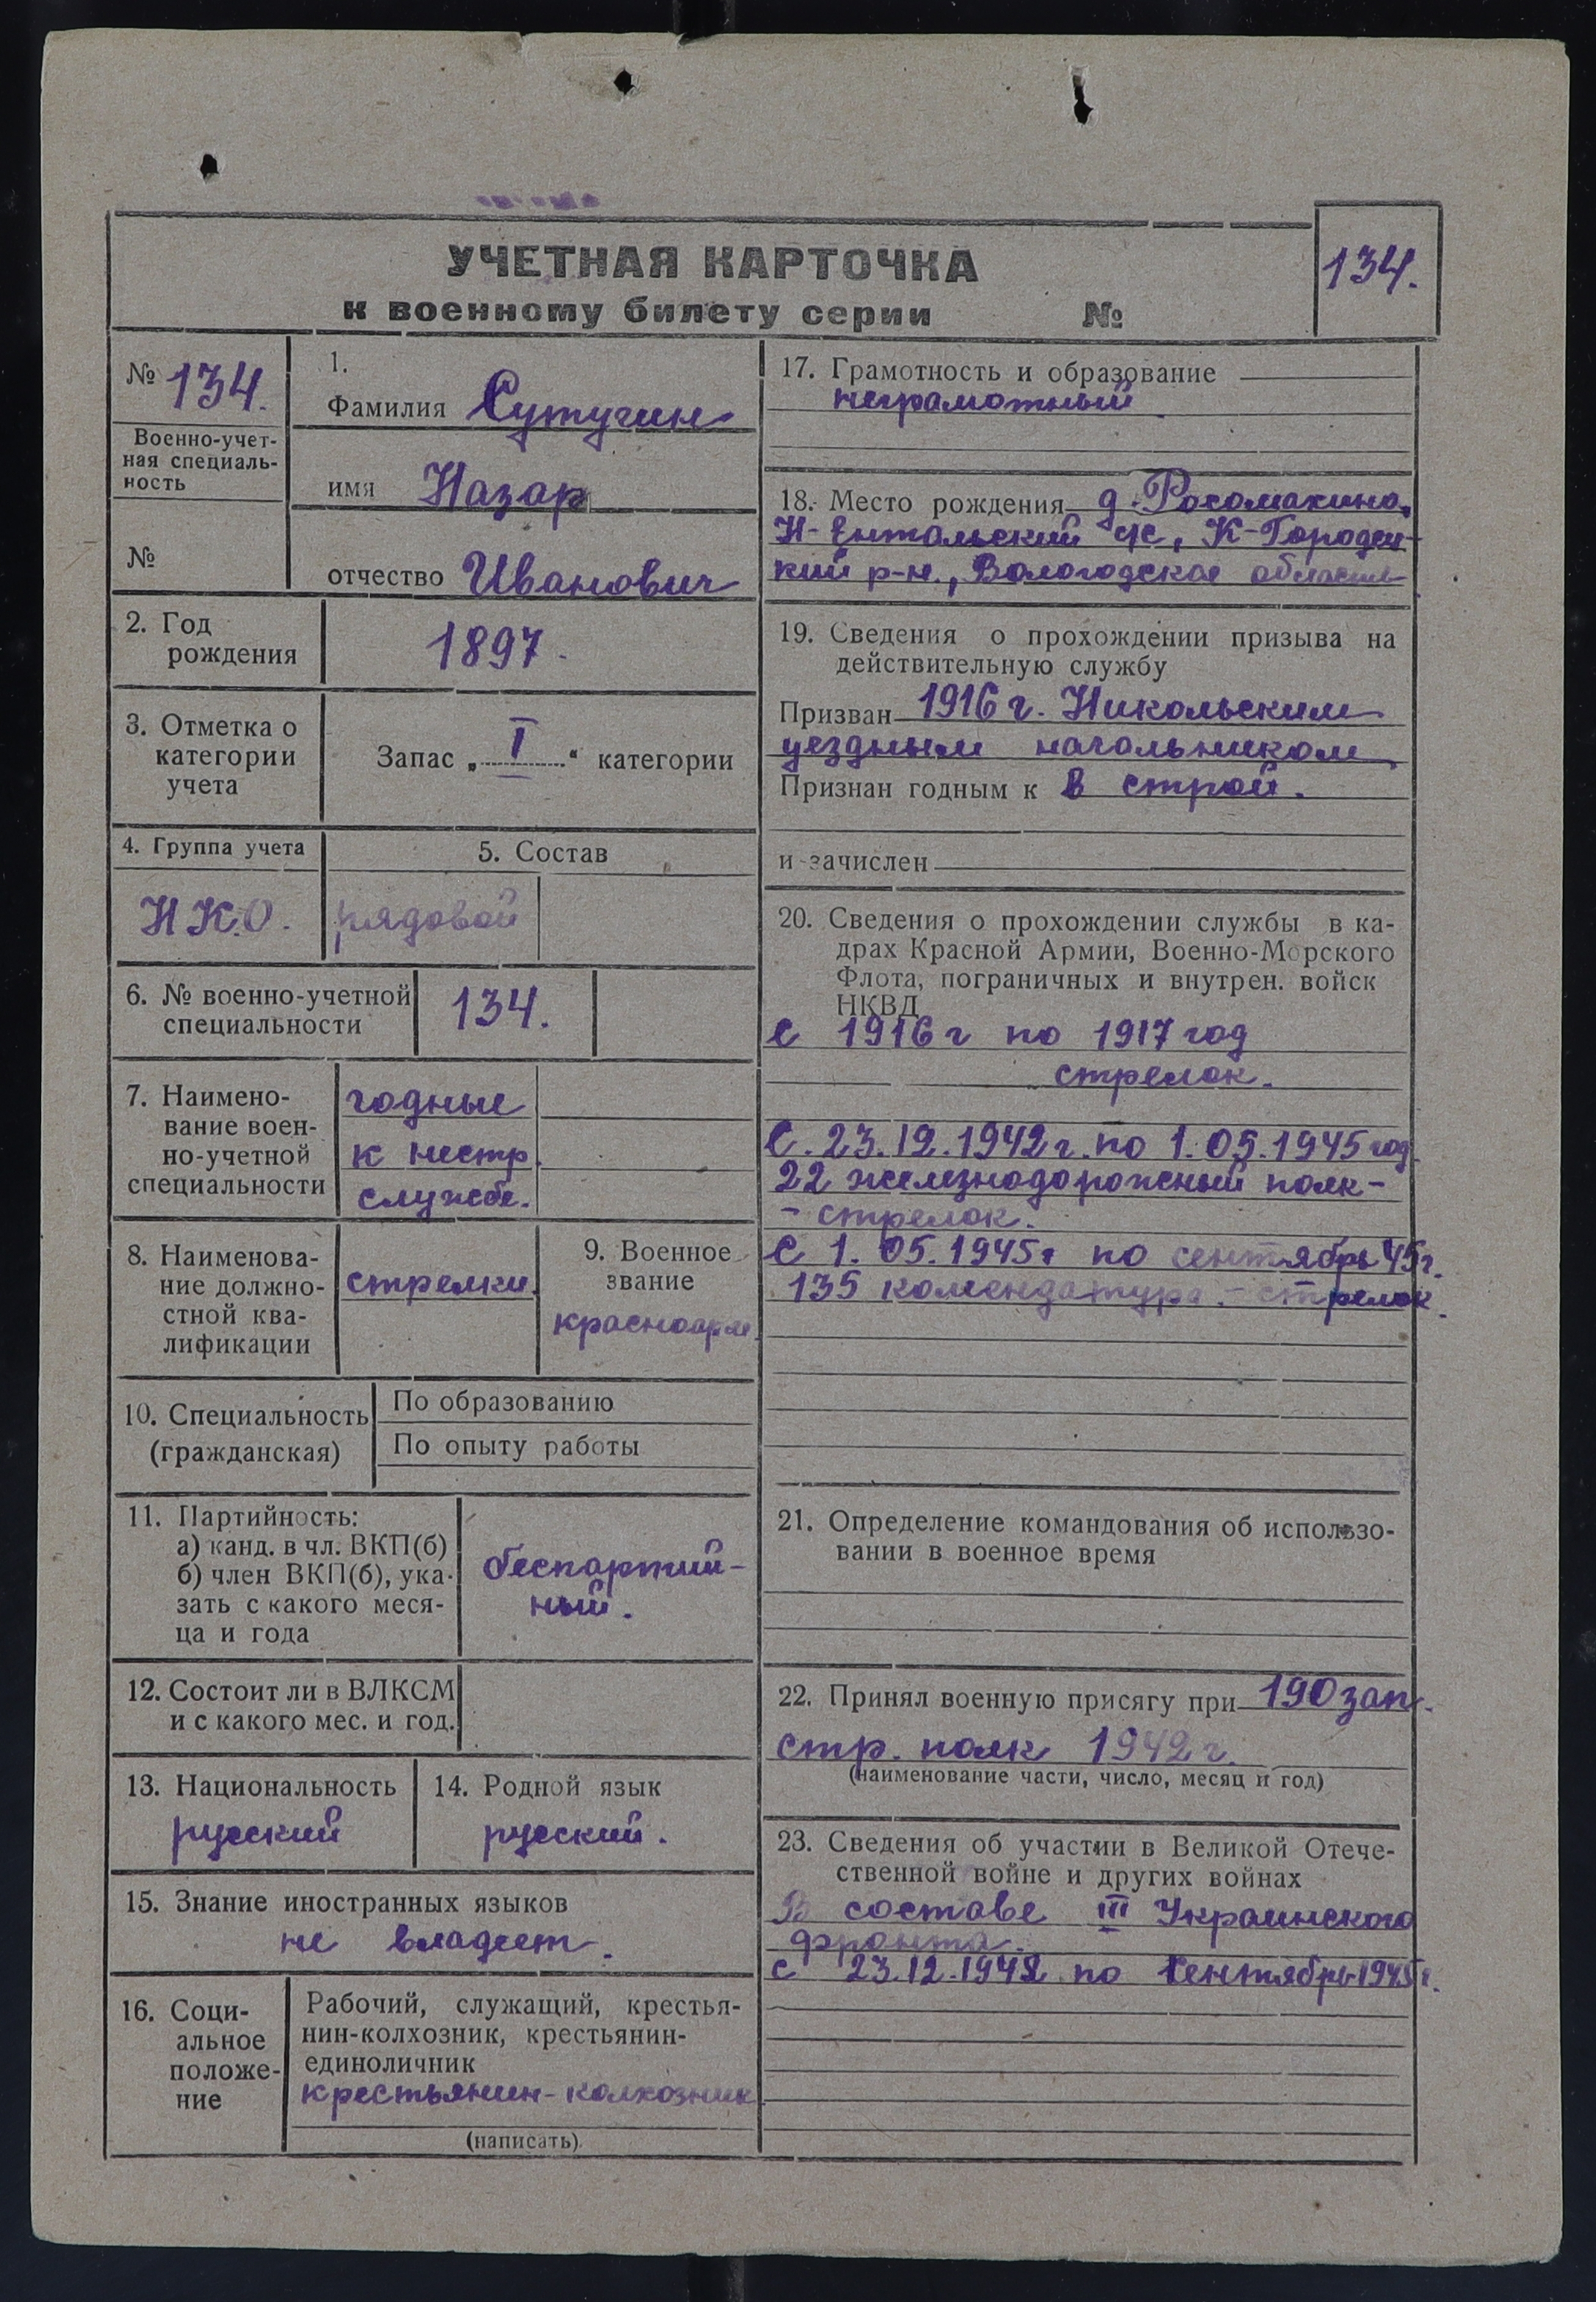 УЧЕТНАЯ КАРТОЧКА
к военному билету серии №
134.
№ 134.
Военно-учет-
ная специаль-
ность
№
1.
Фамилия Сутугин
имя Назар
отчество Иванович
2. Год
рождения
1897.
3. Отметка о
категории
учета
Запас „ I “ категории
4. Группа учета
Н.К.О.
5. Состав
рядовой
6. № военно-учетной
специальности
134.
7. Наимено-
вание воен-
но-учетной
специальности
годные
к нестр.
службе.
8. Наименова-
ние должно-
стной ква-
лификации
стрелки.
9. Военное
звание
красноарм.
10. Специальность
(гражданская)
По образованию
По опыту работы
11. Партийность:
а) канд. в чл. ВКП(б)
б) член ВКП(б), ука-
зать с какого меся-
ца и года
беспартий-
ный.
12. Состоит ли в ВЛКСМ
и с какого мес. и год.
13. Национальность
русский
14. Родной язык
русский.
15. Знание иностранных языков
не владеет.
16. Соци-
альное
положе-
ние
Рабочий, служащий, крестья-
нин-колхозник, крестьянин-
единоличник
крестьянин-колхозник
(написать)
17. Грамотность и образование
неграмотный.
18. Место рождения д. Росомахино,
Н-Ентальский с/с, К-Городец-
кий р-н., Вологодская область
19. Сведения о прохождении призыва на
действительную службу
Призван 1916 г. Никольским
уездным начальником
Признан годным к в строй.
и зачислен
20. Сведения о прохождении службы в ка-
драх Красной Армии, Военно-Морского
Флота, пограничных и внутрен. войск
НКВД
с 1916 г по 1917 год
стрелок.
С. 23.12.1942 г. по 1.05.1945 год.
22 железнодорожный полк -
- стрелок.
С 1.05.1945 г по сентябрь 45 г.
135 комендатура - стрелок.
21. Определение командования об использо-
вании в военное время
22. Принял военную присягу при 190 зап.
стр. полк 1942 г.
(наименование части, число, месяц и год)
23. Сведения об участии в Великой Отече-
ственной войне и других войнах
В составе III Украинского
фронта.
с 23.12.1942 по сентябрь 1945 г.